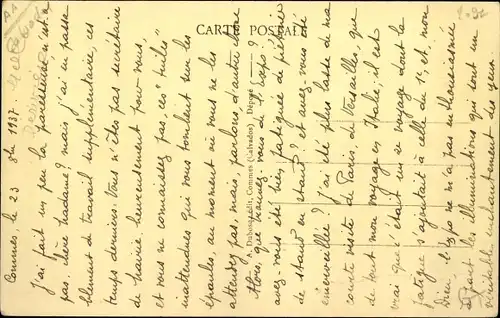 CARTE POSTALE
A. Dubosq, édit., Commes (Calvados). Déposé
Commes, le 23 1937.
J'ai fait un peu la paresseuse n'est-ce
pas, chère madame? mais j'ai eu passa-
blement de travail supplémentaire, ces
temps derniers. Vous n'êtes pas secrétaire
de mairie heureusement pour vous,
et vous ne connaissez pas, ces "tuiles"
inattendues qui vous tombent sur les
épaules, au moment où vous ne les
attendez pas, mais, parlons d'autre chose
Alors, que pensez-vous de l'expo?
avez-vous été bien fatiguée de piétiner
de stand en stand? et avez-vous été
émerveillée? J'ai été plus lasse de ma
courte visite de Paris, de Versailles, que
de tout mon voyage en Italie; il est
vrai que c'était un voyage dont la
fatigue s'ajoutait à celle du 1er, et, mon
Dieu! l'expo ne m'a pas enthousiasmée
sauf les illuminations qui sont un
véritable enchantement des yeux.